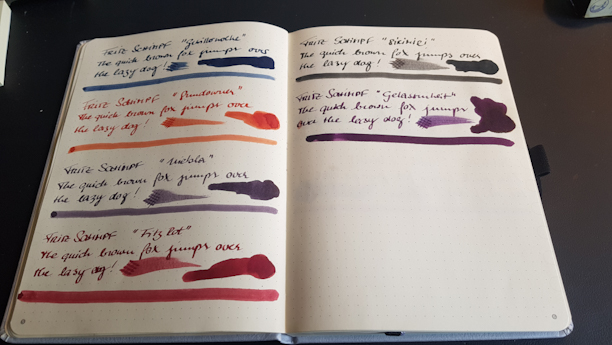 FRITZ SCHIMPF "Guillonoche"
The quick brown fox jumps over
the lazy dog!
FRITZ SCHIMPF "Sundowner"
The quick brown fox jumps over
the lazy dog!
FRITZ SCHIMPF
The quick brown fox jumps over
the lazy dog!
FRITZ SCHIMPF "Filzlot"
The quick brown fox jumps over
the lazy dog!
FRITZ SCHIMPF
The quick brown fox jumps over
the lazy dog!
FRITZ SCHIMPF "Gelassenheit"
The quick brown fox jumps
over the lazy dog!